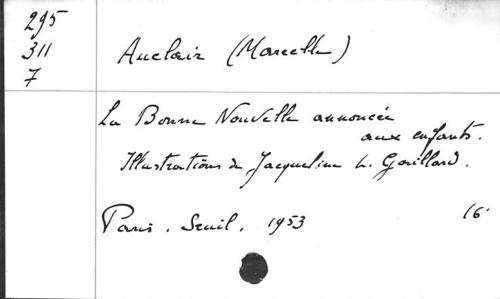 295
311
7
Auclair (Marcelle)
La Bonne Nouvelle annoncée
aux enfants.
Illustrations de Jacqueline L. Gaillard.
Paris. Seuil. 1953 16°